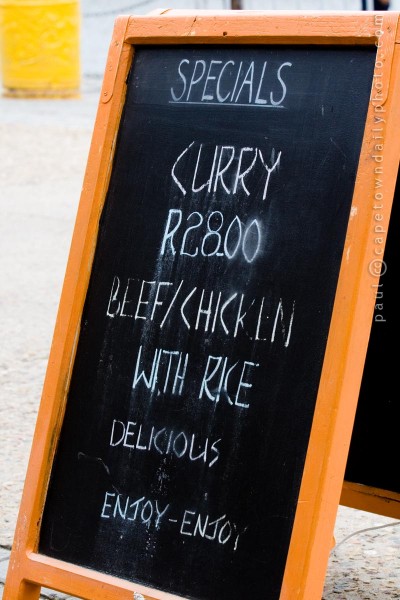 SPECIALS
CURRY
R28.00
BEEF/CHICKEN
WITH RICE
DELICIOUS
ENJOY-ENJOY
paul@capetowndailyphoto.com